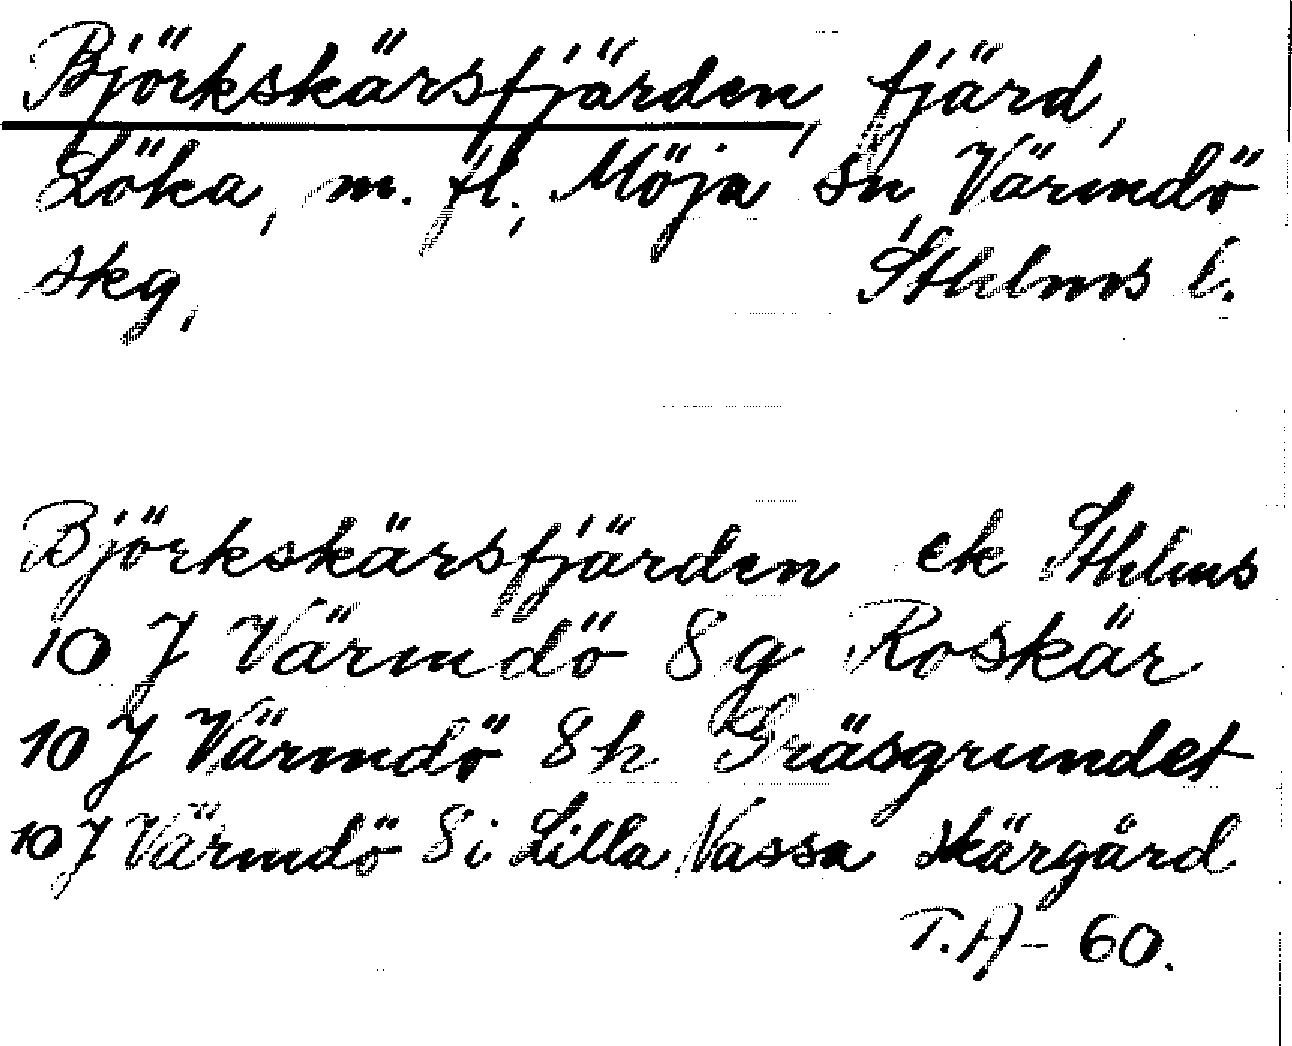 Björkskärsfjärden, fjärd,
Löka, m. fl., Möja sn, Värmdö
skg, Sthlms l.
Björkskärsfjärden ek Sthlms
10 J Värmdö 8g Roskär
10 J Värmdö 8h Gräsgrundet
10 J Värmdö 8i Lilla Nassa skärgård
T.A- 60.